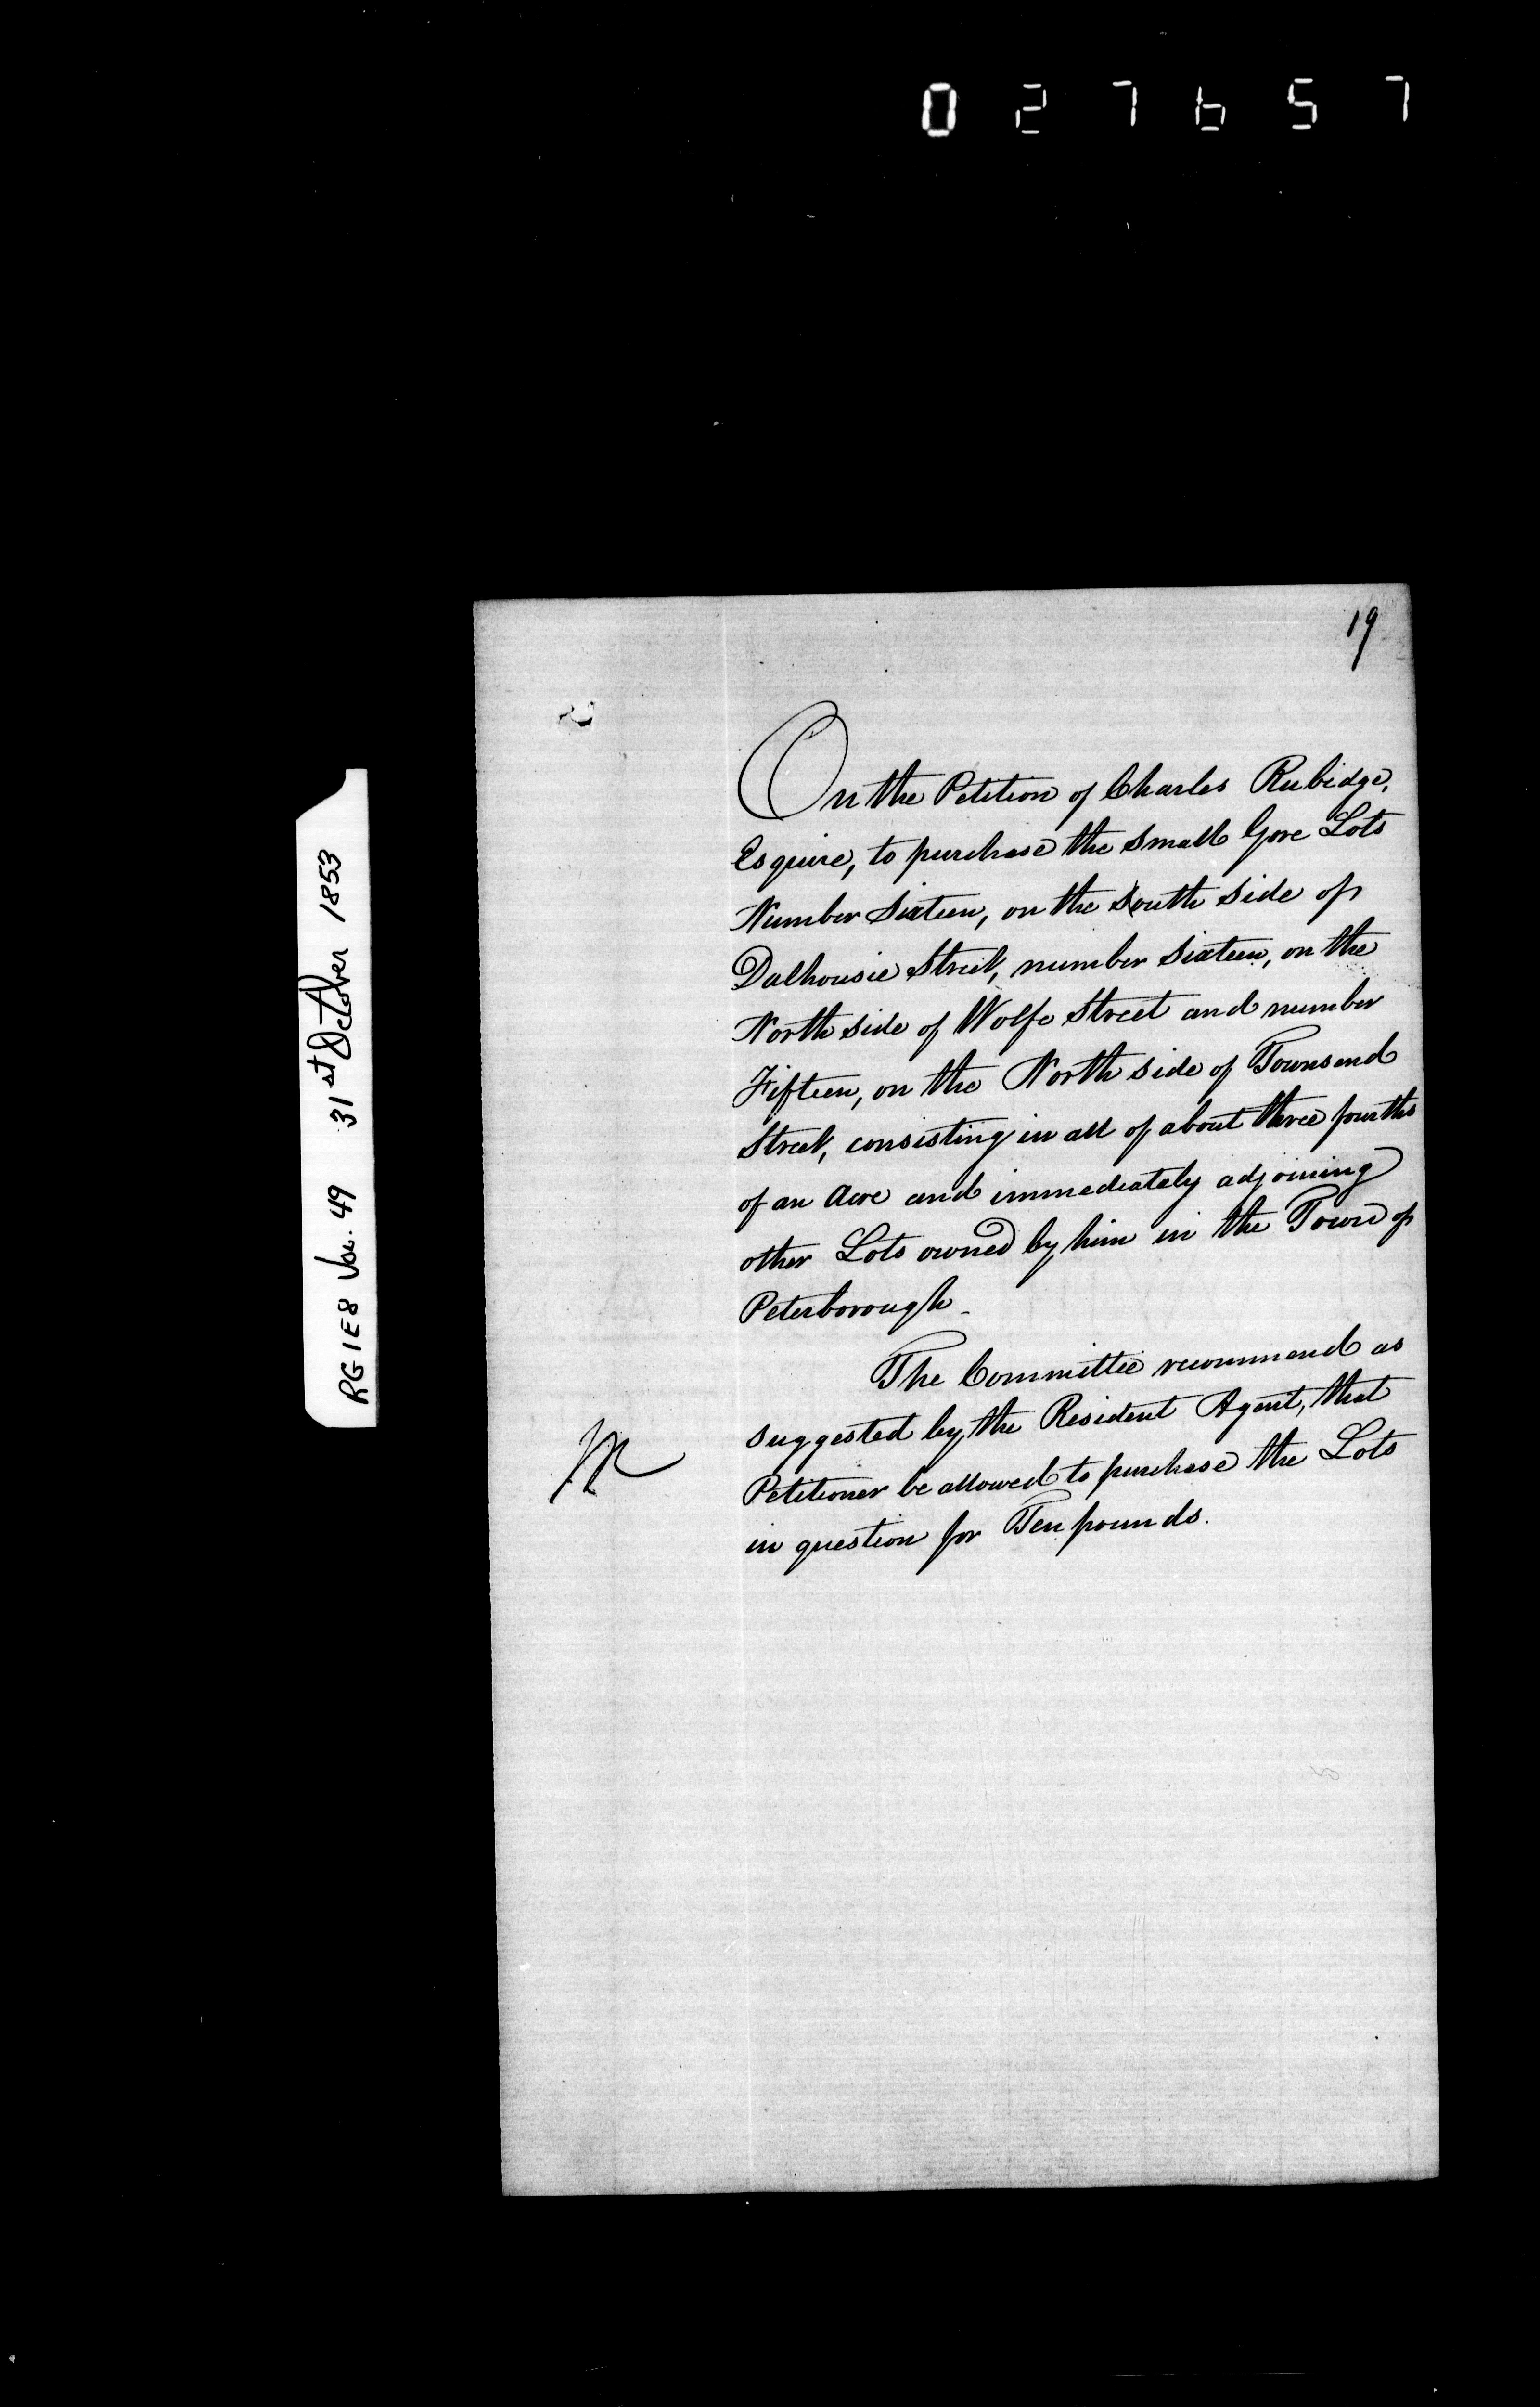 027657
19
RG1E8 Vol. 49 31st October 1853
On the Petition of Charles Rubidge,
Esquire, to purchase the small Gore Lots
Number Sixteen, on the south side of
Dalhousie Street, number Sixteen, on the
North side of Wolfe Street and number
Fifteen, on the North side of Townsend
Street, consisting in all of about three fourths
of an Acre and immediately adjoining
other Lots owned by him in the Town of
Peterborough.
The Committee recommend as
suggested by the Resident Agent, that
Petitioner be allowed to purchase the Lots
in question for Ten pounds.